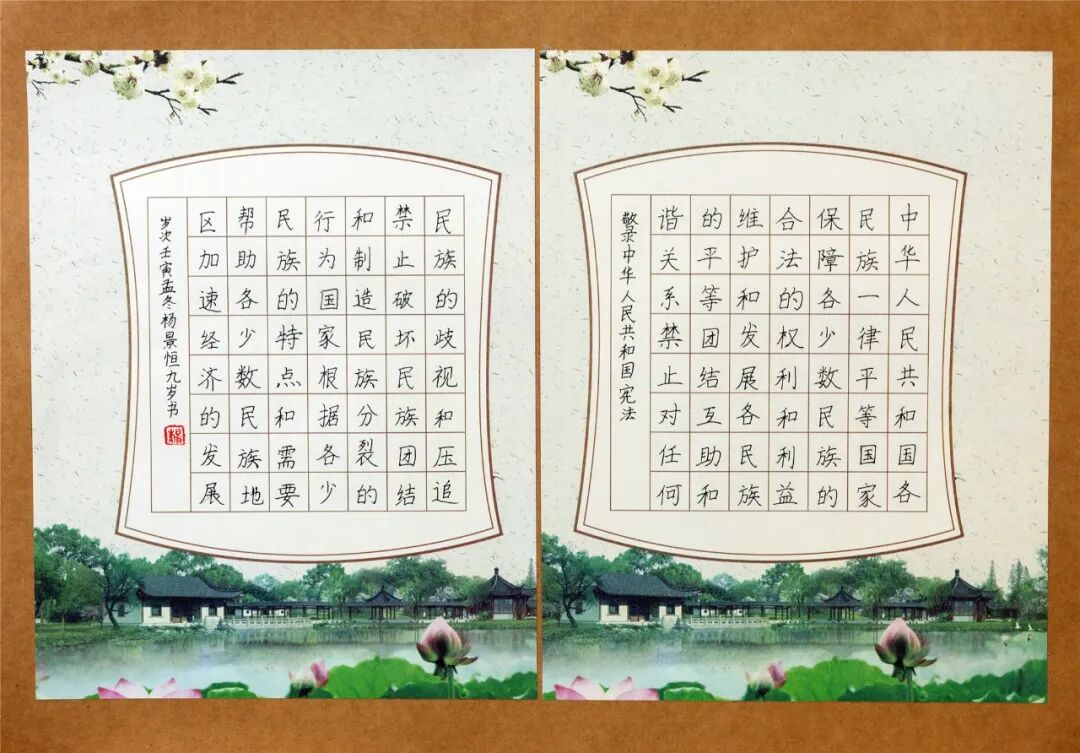 中华人民共和国各
民族一律平等国家
保障各少数民族的
合法的权利和利益
维护和发展各民族
的平等团结互助和
谐关系禁止对任何
录中华人民共和国宪法
民族的歧视和压追
禁止破坏民族团结
和制造民族分裂的
行为国家根据各少
民族的特点和需要
帮助各少数民族地
区加速经济的发展
岁次壬寅孟冬杨景恒九岁书